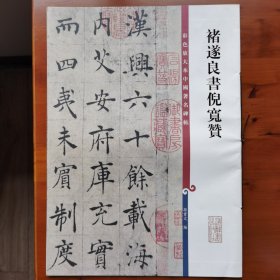 褚遂良書倪寬贊
彩色放大本中國著名碑帖
漢興六十餘載海
内艾安府庫充實
而四夷未賓制度